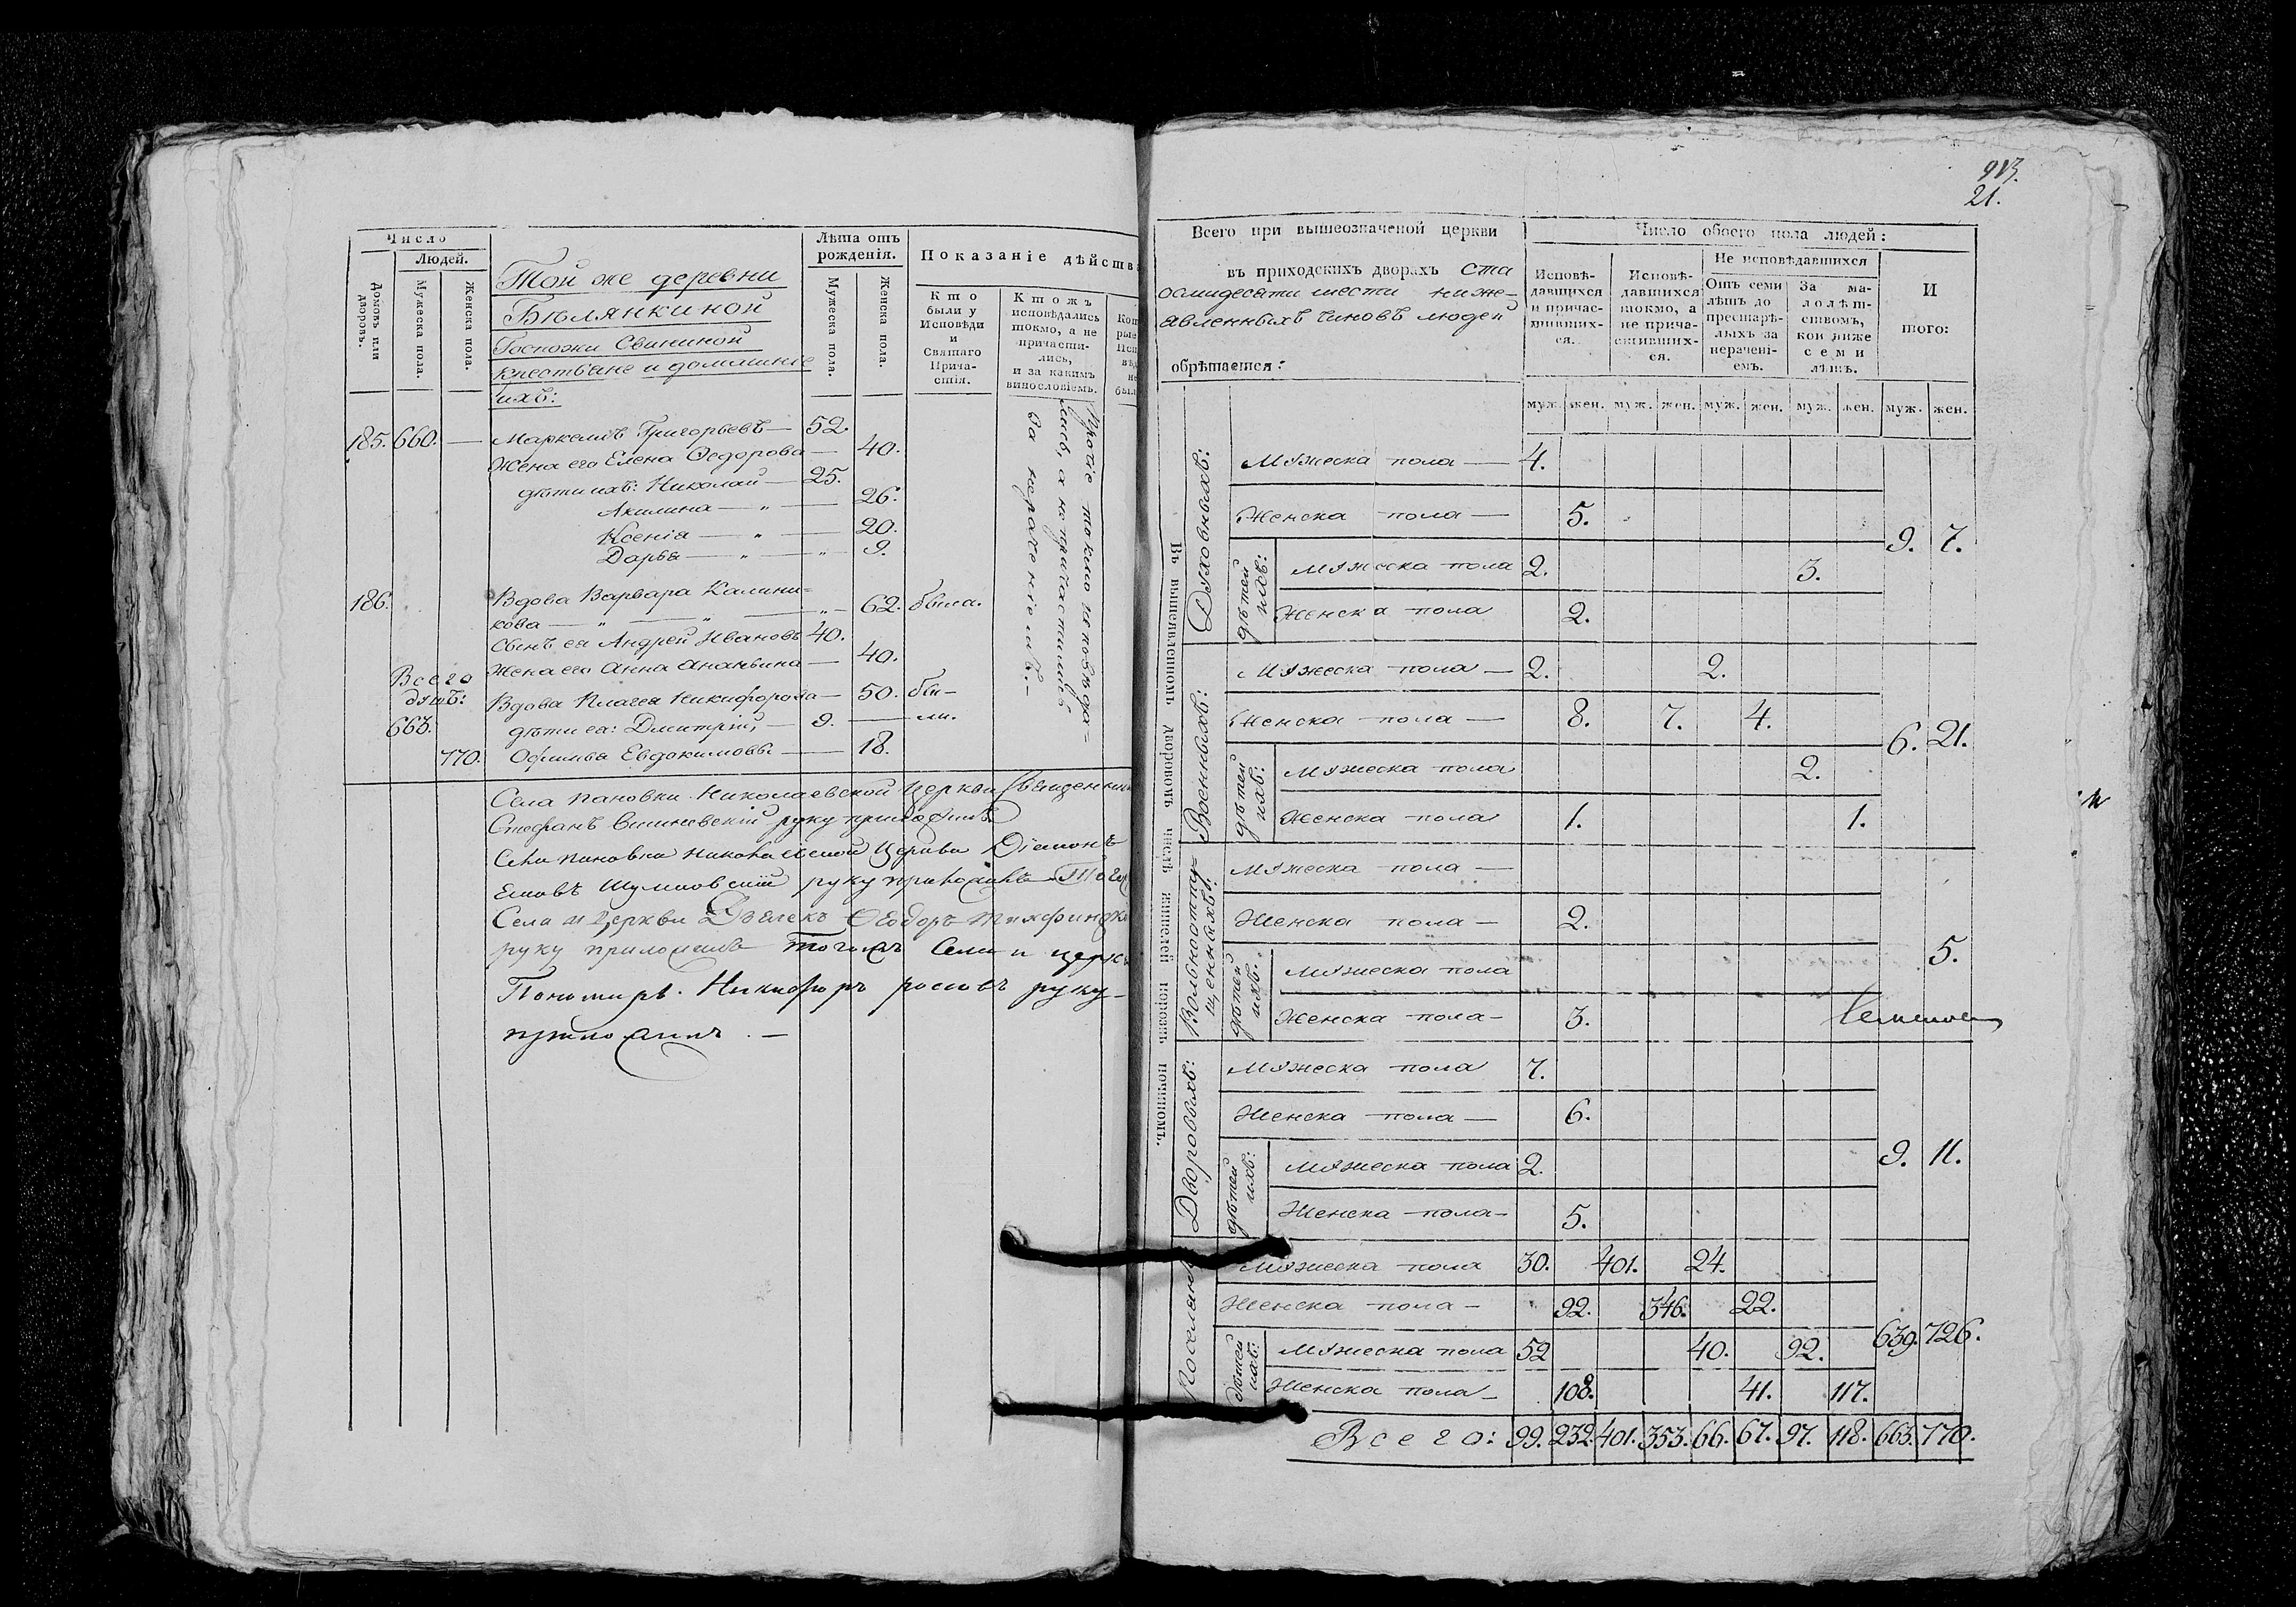 Число
Людей.
Домовъ или дворовъ.
Мужеска пола.
Женска пола.
Той же деревни
Бѣлянкиной
Госпожи Свининой
крестьяне и домашніе
ихъ:
Лѣта отъ рожденія.
Мужеска пола.
Женска пола.
Показаніе дѣйства
Кто были у Исповѣди и Святаго Причастія.
Ктожъ исповѣдались токмо, а не причастились, и за какимъ винословіемъ.
185. 660. — Маркелъ Григорьевъ — 52.
Жена его Елена Ѳедорова — 40.
дѣти ихъ: Николай — 25.
Акилина — „ — 26.
Ксенія — „ — 20.
Дарья — „ — „ — 9.
186. Вдова Варвара Калини-
кова — „ — „ — „ — 62. была.
Сынъ ея Андрей Ивановъ 40.
Жена его Анна Ананьина — 40.
Всего
душъ:
Вдова Пелагея Никифорова — 50. бы-
663. дѣти ея: Дмитрій, — 9. — ли.
770. Офимья Евдокимовы — 18.
Прочіе токмо исповѣда-
лись, а не причастились
за нераченіемъ. —
Села Пановки Николаевской Церкви Священникъ
Стефанъ руку приложилъ
Села Пановки Николаевской Церкви Діаконъ
руку приложилъ Тогожъ
Села и Церкви Дьячекъ Ѳеодоръ
руку приложилъ Тогожъ Села и церкви
Пономарь Никифоръ руку
приложилъ. —
913.
21.
Всего при вышеозначеной церкви
въ приходскихъ дворахъ ста
осмидесяти шести ниже-
явленныхъ чиновъ людей
обрѣтается:
Число обоего пола людей:
Исповѣдавшихся и причастившихся.
Исповѣдавшихся токмо, а не причастившихся.
Не исповѣдавшихся
Отъ семи лѣтъ до престарѣлыхъ за нераченіемъ.
За малолѣтствомъ, кои ниже семи лѣтъ.
И того:
муж. жен. муж. жен. муж. жен. муж. жен. муж. жен.
Въ вышеявленномъ дворовомъ числѣ жителей порознь починомъ.
Духовныхъ:
Мужеска пола — 4.
Женска пола — 5.
9. 7.
дѣтей ихъ:
Мужеска пола 2. 3.
Женска пола 2.
Военныхъ:
Мужеска пола — 2. 2.
Женска пола — 8. 7. 4.
6. 21.
дѣтей ихъ:
Мужеска пола 2.
Женска пола 1. 1.
Вольноотпу-
щенныхъ:
Мужеска пола —
Женска пола — 2.
5.
дѣтей ихъ:
Мужеска пола
Женска пола — 3.
Дворовыхъ:
Мужеска пола 7.
Женска пола — 6.
9. 11.
дѣтей ихъ:
Мужеска пола 2.
Женска пола — 5.
Мужеска пола 30. 401. 24.
Женска пола — 92. 346. 22.
639. 726.
дѣтей ихъ:
Мужеска пола 52 40. 92.
Женска пола — 108. 41. 117.
Всего: 99. 232. 401. 353. 66. 67. 97. 118. 663. 770.